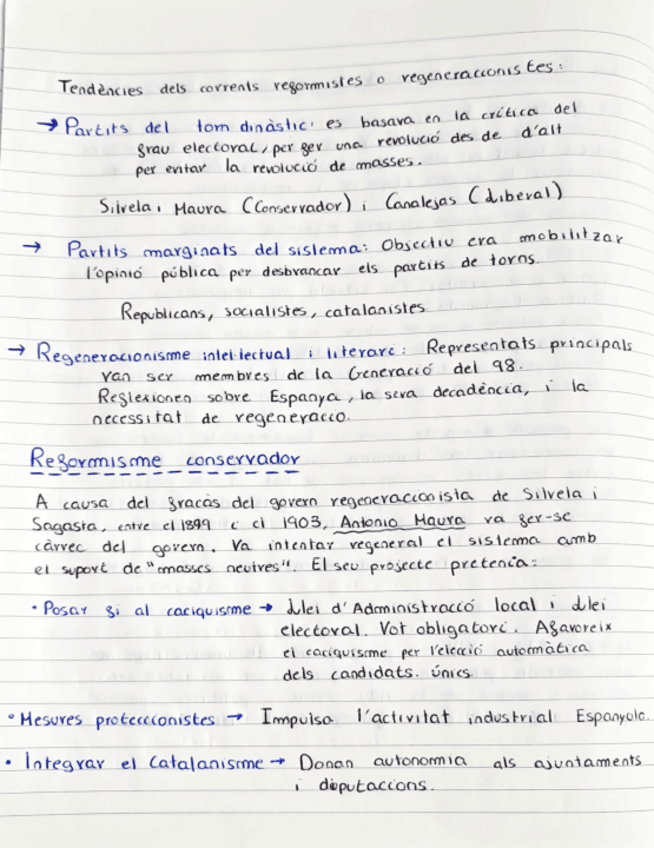 Tendències dels corrents reformistes o regeneracionistes:
→ Partits del torn dinàstic: es basava en la crítica del
frau electoral, per fer una revolució des de d'alt
per evitar la revolució de masses.
Silvela, Maura (Conservador) i Canalejas (Liberal)
→ Partits marginats del sistema: Objectiu era mobilitzar
l'opinió pública per desbrancar els partits de torns.
Republicans, socialistes, catalanistes
→ Regeneracionisme intel·lectual i literari: Representats principals
van ser membres de la Generació del 98.
Reflexionen sobre Espanya, la seva decadència, i la
necessitat de regeneracio.
Reformisme conservador
A causa del fracàs del govern regeneraccionista de Silvela i
Sagasta, entre el 1899 i el 1903, Antonio Maura va fer-se
càrrec del govern. Va intentar regeneral el sistema amb
el suport de "masses neutres". El seu projecte pretenia:
• Posar fi al caciquisme → Llei d'Administracció local i Llei
electoral. Vot obligatori. Afavoreix
el caciquisme per l'elecció automàtica
dels candidats. únics
• Mesures proteccionistes → Impulsa l'activitat industrial Espanyola.
• Integrar el Catalanisme → Donan autonomia als ajuntaments
i diputaccions.